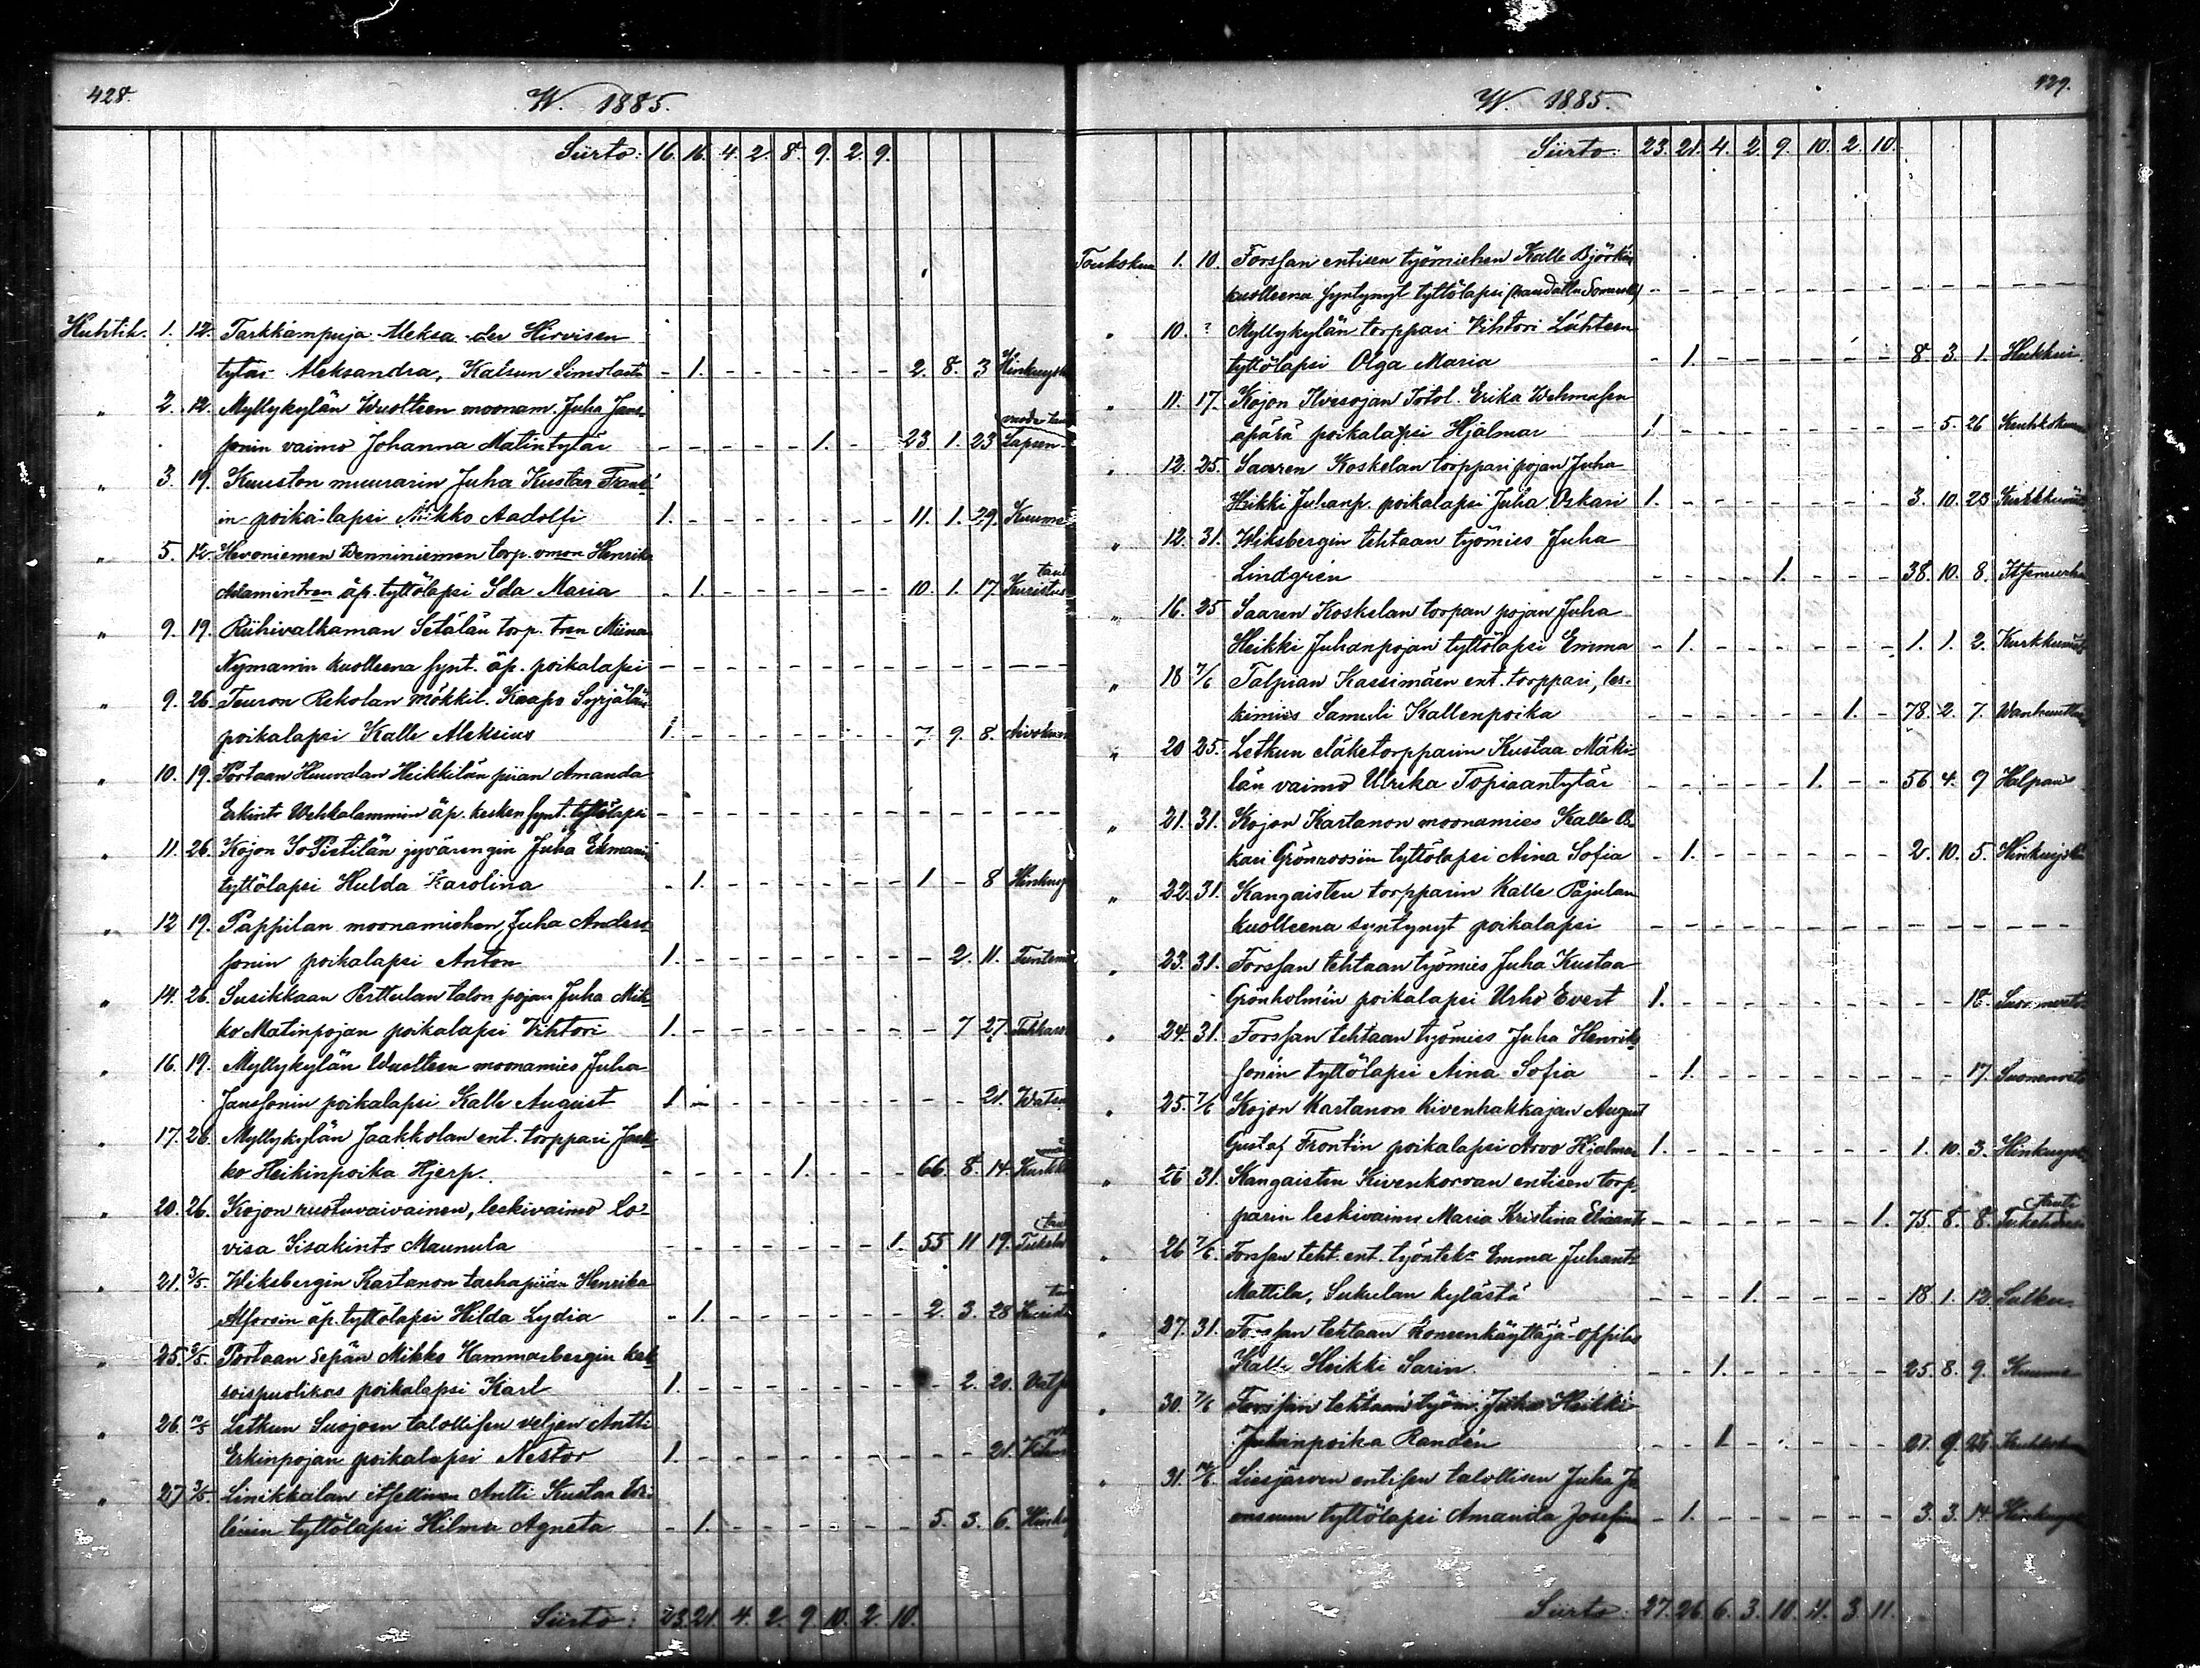 428.
W. 1885.
Siirto: 16. 16. 4. 2. 8. 9. 2. 9.
Huhtik. 1. 12. Tarkkampuja Aleksander Hirvisen
tytär Aleksandra, Kalsun Simolasta - 1. - - - - - - 2. 8. 3
" 2. 12. Myllykylän Wuolteen moonam. Juha Jans-
sonin vaimo Johanna Matintytär - - - - - 1. - - 23. 1. 23 Lapsen
" 3. 19. Kuuston muurarin Juha Kustaa
in poikalapsi Mikko Aadolfi 1. - - - - - - - 11. 1. 29. Kuume
" 5. 12. torp. Henrika
Adamintren äp. tyttölapsi Ida Maria - 1. - - - - - - 10. 1. 17. Kuristus
" 9. 19. Riihivalkaman Setälän torp. tren Miina
Nymanin kuolleena synt. äp. poikalapsi - - - - - - - - - - - -
" 9. 26. Teuron Rekolan mökkil. Kaapo Syrjälän
poikalapsi Kalle Aleksius 1. - - - - - - - 7. 9. 8.
" 10. 19. Portaan Huuvolan Heikkilän piian Amanda
Erkintr Wehkalammin äp. kesken synt. tyttölapsi - - - - - - - - - - - -
" 11. 26. Kojon jyvärengin Juha Ekmanin
tyttölapsi Hulda Karolina - 1. - - - - - - 1 - 8
" 12 19. Pappilan moonamiehen Juha Anders-
sonin poikalapsi Anton 1. - - - - - - - - 2. 11.
" 14. 26. Susikkaan Perttulan talon pojan Juha Mik-
ko Matinpojan poikalapsi Vihtori 1. - - - - - - - - 7 27.
" 16. 19. Myllykylän Wuolteen moonamies Juha
Janssonin poikalapsi Kalle August 1. - - - - - - - - - 21.
" 17. 26. Myllykylän Jaakkolan ent. torppari Jaak-
ko Heikinpoika Hjerp. - - - - 1. - - - 66. 8. 14.
" 20. 26. Kojon ruotuvaivainen, leskivaimo Lo-
visa Iisakintr Maunula - - - - - - - 1. 55 11 19.
" 21. 3/5. Wiksbergin Kartanon karhapiian Henrika
Alforsin äp. tyttölapsi Hilda Lydia - 1. - - - - - - 2. 3. 28
" 25. 3/5. Portaan sepän Mikko Hammarbergin kak-
soispuolikas poikalapsi Karl 1. - - - - - - - - 2. 20.
" 26. Letkun Suojoen talollisen veljen Antti
Erkinpojan poikalapsi Nestor 1. - - - - - - - - - 21.
" 27 3/5. Linikkalan itsellisen Antti Kustaa
tyttölapsi Hilma Agneta - 1. - - - - - - 5. 3. 6.
Siirto: 23. 21. 4. 2. 9. 10. 2. 10.
429.
W. 1885.
Siirto: 23. 21. 4. 2. 9. 10. 2. 10.
Toukokuu 1. 10. Forssan entisen työmiehen Kalle Björkin
kuolleena syntynyt tyttölapsi (haudattu Somerolla) - - - - - - - - - - - -
" 10. ? Myllykylän torppari Vihtori Lähteen
tyttölapsi Olga Maria - 1. - - - - - - 8 3. 1.
" 11. 17. Kojon Ilvesojan Itsl. Erika Wehmasen
äpärä poikalapsi Hjalmar 1. - - - - - - - - 5. 26
" 12. 25. Saaren Koskelan torpparipojan Juha
Heikki Juhanp. poikalapsi Juha Oskari 1. - - - - - - - 3. 10. 23
" 12. 31. Wiksbergin tehtaan työmies Juha
Lindgrén - - - - 1. - - - 38. 10. 8. Itsemurha
" 16. 25 Saaren Koskelan torpan pojan Juha
Heikki Juhanpojan tyttölapsi Emma - 1. - - - - - - 1. 1. 2.
" 18 7/6 Talpian Kassimäen ent. torppari, les-
kimies Samuli Kallenpoika - - - - - - 1. - 78. 2. 7.
" 20 25. Letkun eläketorpparin Kustaa Mäki-
län vaimo Ulrika Topiaantytär - - - - - 1. - - 56 4. 9 Halpaus
" 21. 31. Kojon Kartanon moonamies Kalle Os-
kari Grönroosin tyttölapsi Aina Sofia - 1. - - - - - - 2. 10. 5.
" 22. 31. Kangaisten torpparin Kalle Pajulan
kuolleena syntynyt poikalapsi - - - - - - - - - - - -
" 23. 31. Forssan tehtaan työmies Juha Kustaa
Grönholmin poikalapsi Urho Evert 1. - - - - - - - - - 18.
" 24. 31. Forssan tehtaan työmies Juha Henrik-
sonin tyttölapsi Aina Sofia - 1. - - - - - - - - 17.
" 25. 7/6 Kojon Kartanon kivenhakkajan August
Gustaf Frontin poikalapsi Arvo Hjalmar 1. - - - - - - - 1. 10. 3.
" 26 31. Kangaisten Kivenkorvan entisen torp-
parin leskivaimo Maria Kristina Eliaantr - - - - - - - 1. 75. 8. 8.
" 26 7/6. Forssan teht. ent. Emma Juhantr
Mattila, Sukulan kylästä - - - 1. - - - - 18 1. 12.
" 27. 31. Forssan tehtaan koneenkäyttäjä-oppilas
Kalle Heikki Sarin. - - 1. - - - - - 25. 8. 9. Kuume
" 30. 7/6 Forssan tehtaan työm. Juha Heikki
Juhanpoika Randén - - 1 - - - - - 21. 9.
" 31. Liesjärven entisen talollisen Juha
tyttölapsi Amanda Josefina - 1. - - - - - - 3. 3. 14
Siirto: 27. 26. 6. 3. 10. 11. 3. 11.